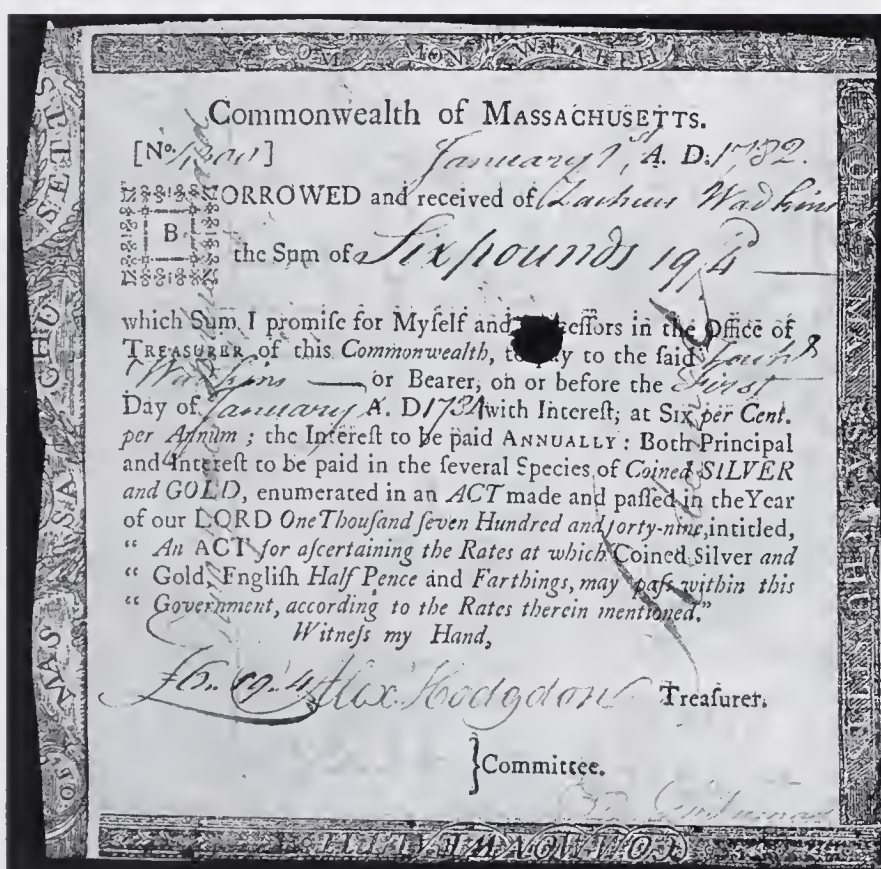 COMMONWEALTH
Commonwealth of MASSACHUSETTS.
[No. ] January 1st, A. D. 1782.
BORROWED and received of Wadkins
the Sum of Six pounds 19/4
which Sum I promiſe for Myſelf and ceſſors in the Office of
TREASURER of this Commonwealth, to pay to the ſaid
Wadkins or Bearer, on or before the First
Day of January A. D. with Intereſt, at Six per Cent.
per Annum ; the Intereſt to be paid ANNUALLY : Both Principal
and Intereſt to be paid in the ſeveral Species of Coined SILVER
and GOLD, enumerated in an ACT made and paſſed in the Year
of our LORD One Thouſand ſeven Hundred and forty-nine, intitled,
“ An ACT for aſcertaining the Rates at which Coined Silver and
“ Gold, Engliſh Half Pence and Farthings, may paſs within this
“ Government, according to the Rates therein mentioned.”
Witneſs my Hand,
£6.. 19.. 4 Alex. Hodgdon Treaſurer.
Committee.
OF MASSACHUSETTS
COMMONWEALTH